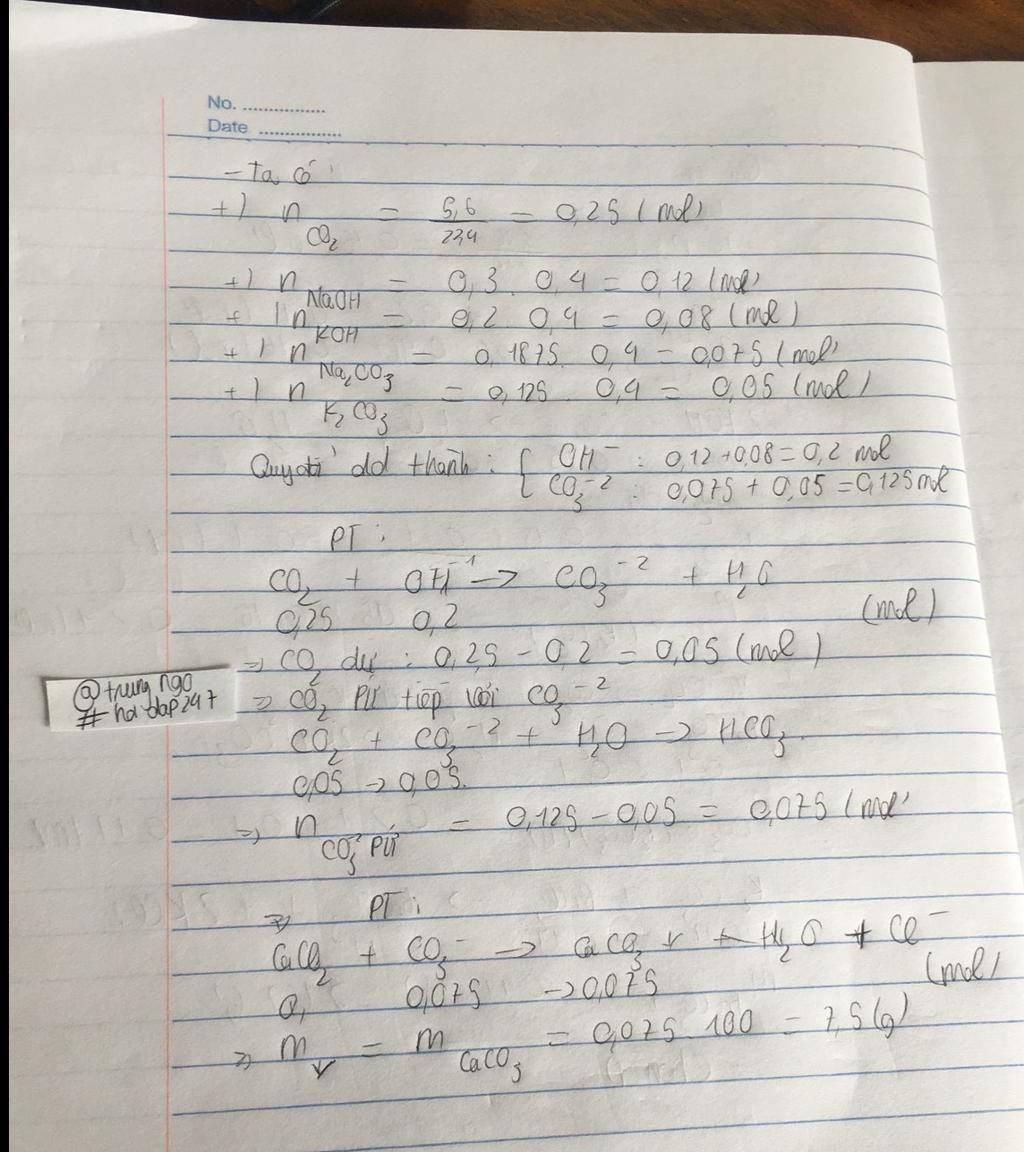 No. ................
Date ................
- Ta có
+) n CO₂ = 5,6 / 22,4 = 0,25 (mol)
+) n NaOH = 0,3 . 0,4 = 0,12 (mol)
+) n KOH = 0,2 . 0,4 = 0,08 (mol)
+) n Na₂CO₃ = 0,1875 . 0,4 = 0,075 (mol)
+) n K₂CO₃ = 0,125 . 0,4 = 0,05 (mol)
dd thành : { OH⁻ : 0,12 + 0,08 = 0,2 mol
CO₃⁻² : 0,075 + 0,05 = 0,125 mol
PT :
CO₂ + OH⁻¹ → CO₃⁻² + H₂O
0,25 0,2 (mol)
⇒ CO₂ dư : 0,25 - 0,2 = 0,05 (mol)
@trung ngo
#hoidap247
⇒ CO₂ PƯ tiếp với CO₃⁻²
CO₂ + CO₃⁻² + H₂O → HCO₃.
0,05 → 0,05.
⇒ n CO₃²⁻ PƯ = 0,125 - 0,05 = 0,075 (mol)
⇒ PT :
CaCl₂ + CO₃⁻ → CaCO₃ ↓ + H₂O + Cl⁻
0, 0,075 → 0,075 (mol)
⇒ m↓ = m CaCO₃ = 0,075 . 100 = 7,5 (g)